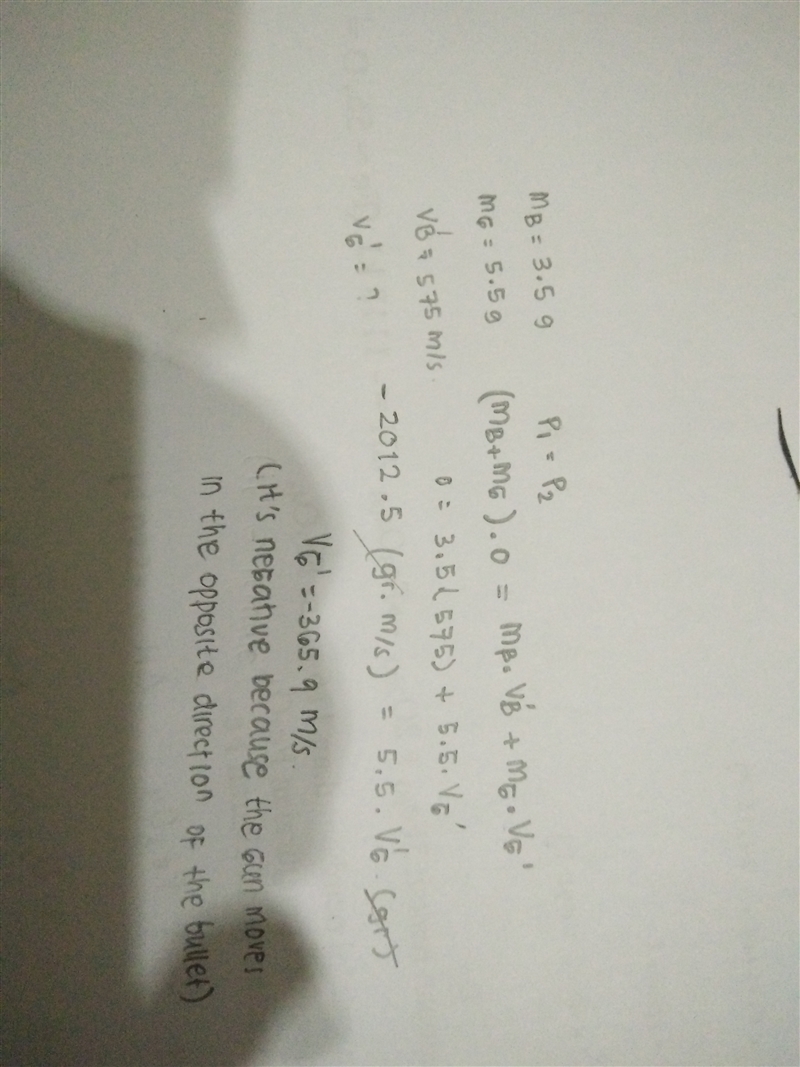 mB = 3.5 g
mG = 5.5 g
vB' = 575 m/s.
vG' = ?
P1 = P2
(mB+mG).0 = mB.vB' + mG.vG'
0 = 3.5(575) + 5.5.vG'
- 2012.5 (gr. m/s) = 5.5. vG' (gr)
vG' = -365.9 m/s.
(it's negative because the gun moves
in the opposite direction of the bullet)